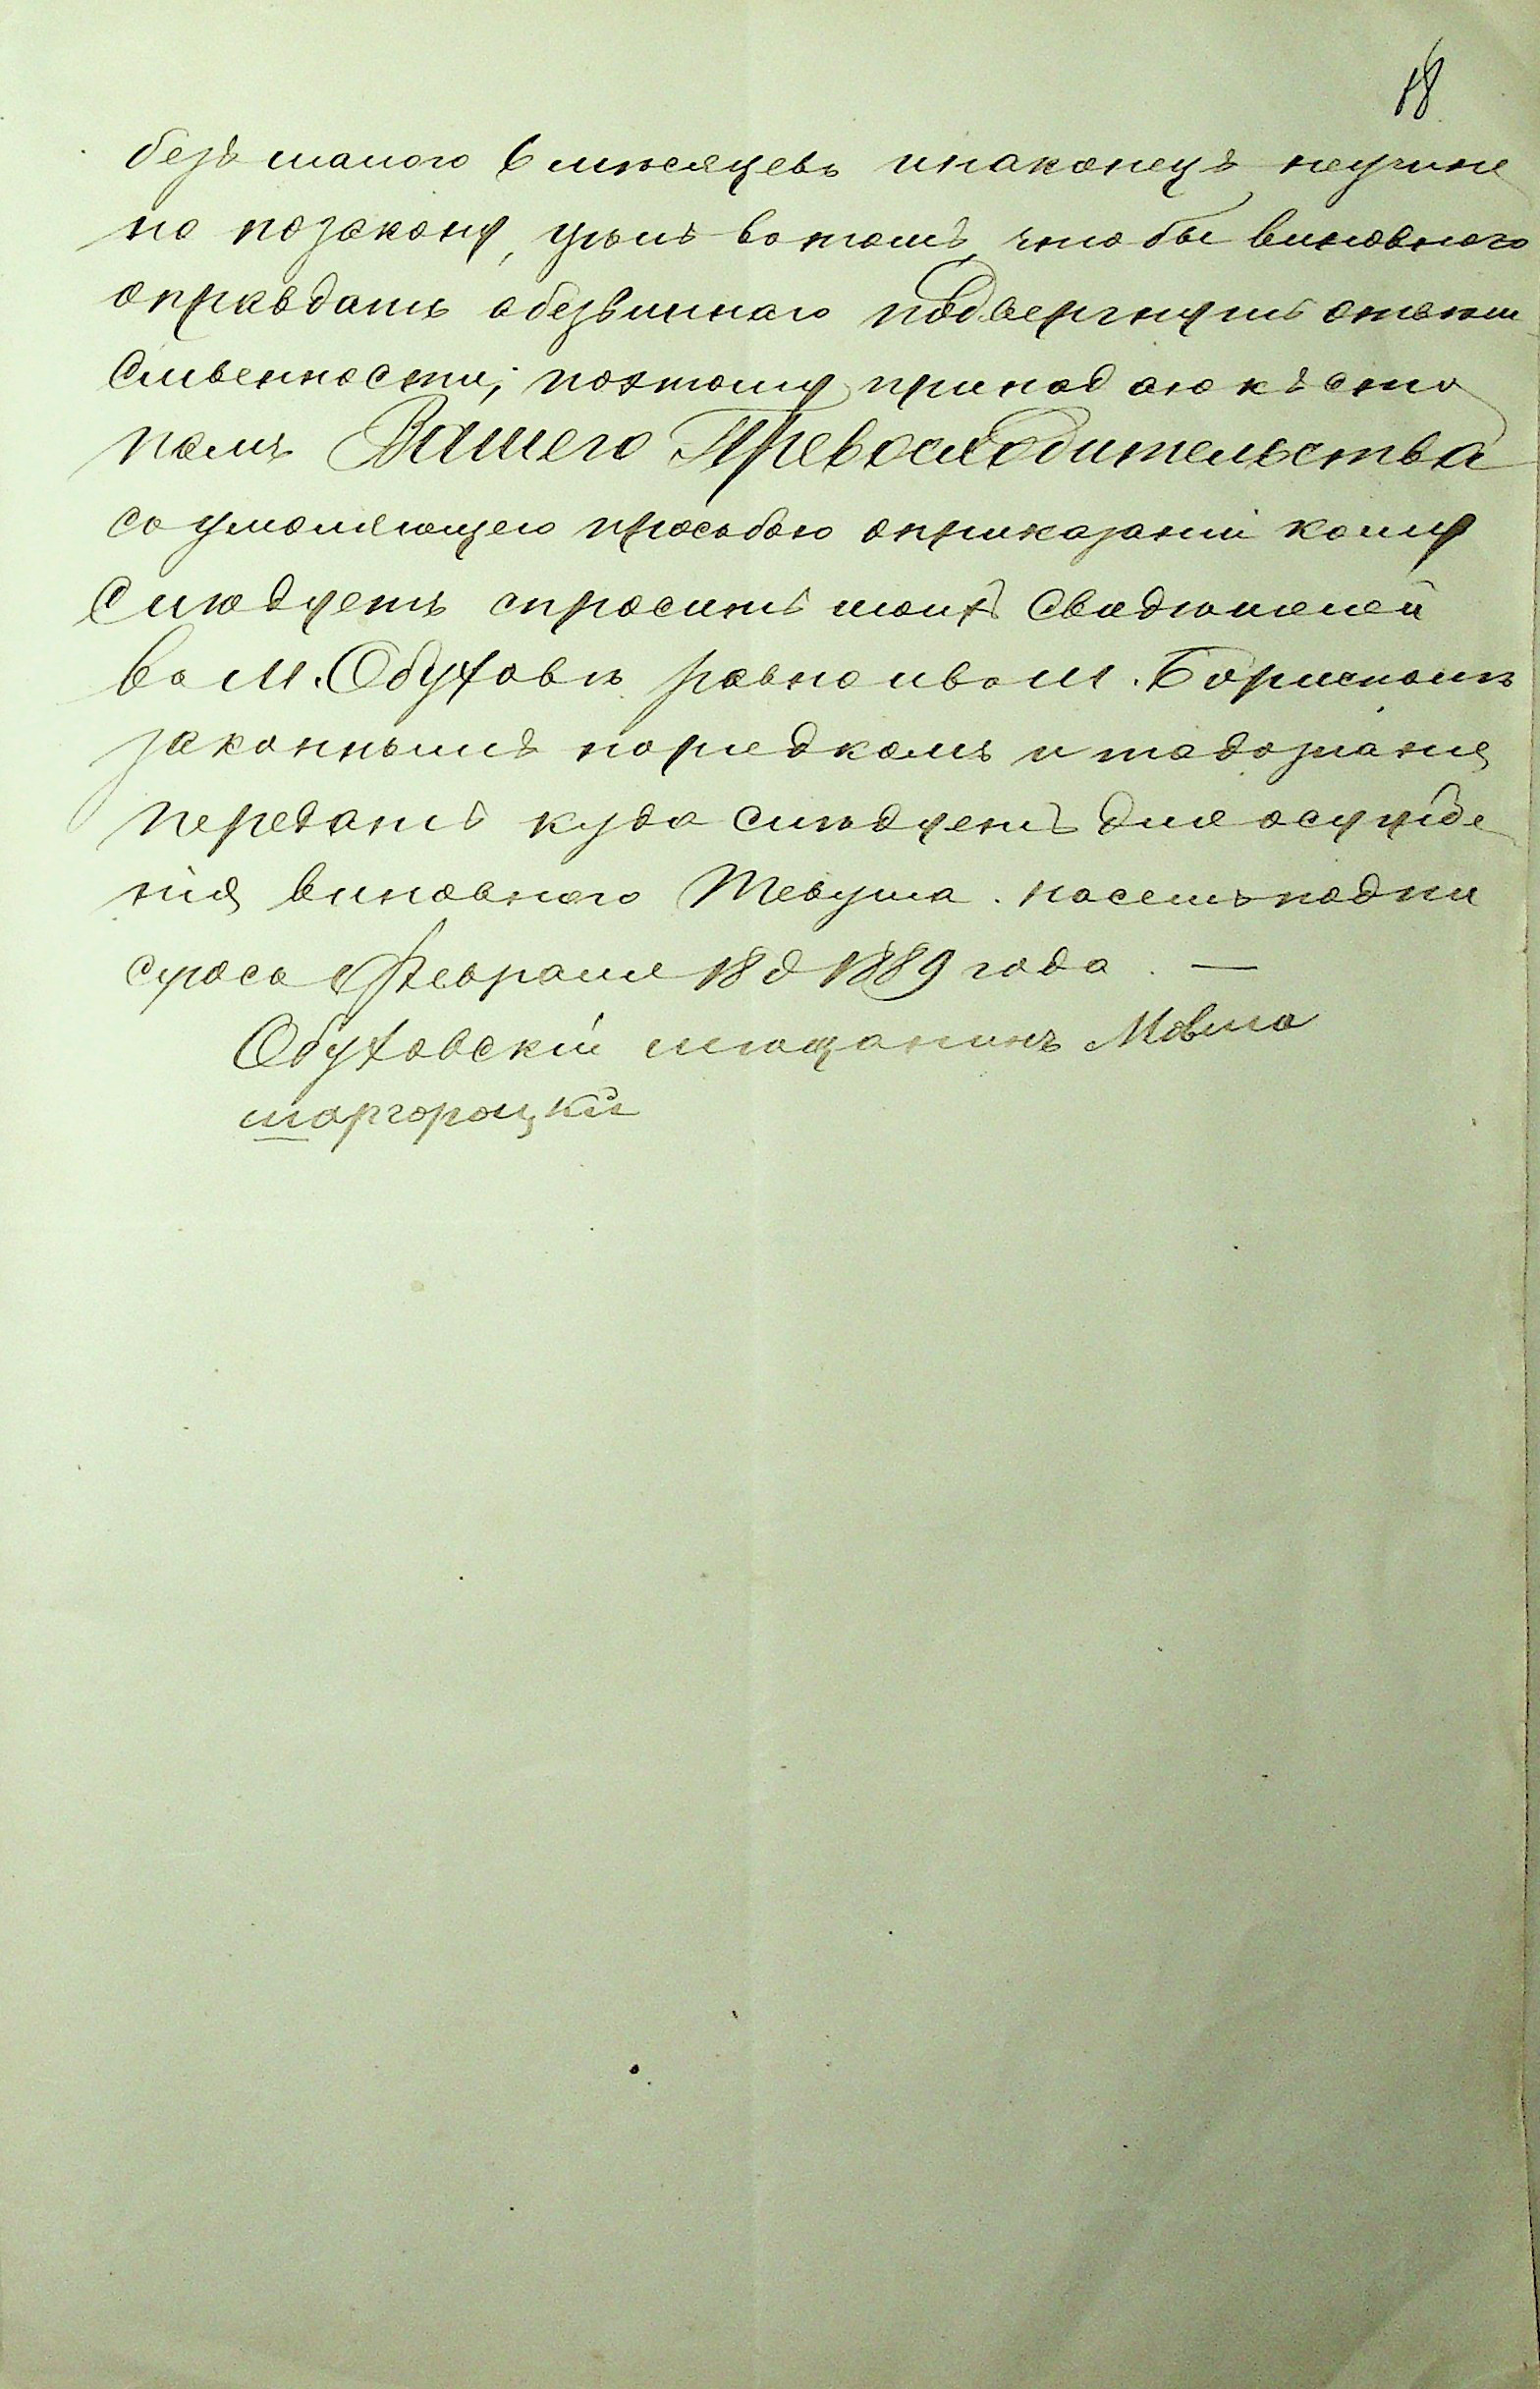 18
безъ малого 6 мѣсяцевъ инаконецъ неучине
но позакону, цѣль вотомъ чтобы виновного
оправдать абезвиннаго подвергнуть отвѣт
ственности; поэтому припадаю къ сто
памъ Вашего Превосходительства
со умоляющею просьбою оприказаніи кому
слѣдуетъ спросить моихъ Свидѣтелей
во м. Обуховѣ равно иво м.
законнымъ порядкомъ и тадознанія
передать куда слѣдуетъ для осужде
нія виновного Тевуша. насемъ подпи
суюсь Февраля 18 д 1889 года. —
Обуховскій мѣщанинъ Мовша
шаргороцкій